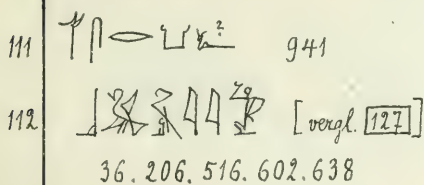 111 𓄟𓋴𓂋𓂓 ? 941
112 𓃀 𓇋𓇋 [vergl. 127]
36. 206. 516. 602. 638